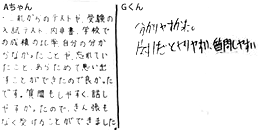 Aちゃん
これからのテストや、受験の
入試テスト、内申書、学校で
の成績の比率自分の分か
らなかったことや、忘れてい
たこと、あらためて思い出
すことができたので良かった
です。質問もしやすく、話し
やすかったので、きん張も
なく受けることができました。
Gくん
分かりやすかった。
質問しやすい